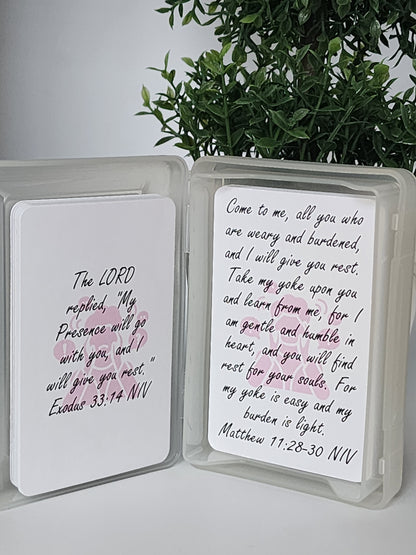 The LORD
replied, "My
Presence will go
with you, and I
will give you rest."
Exodus 33:14 NIV
Come to me, all you who
are weary and burdened,
and I will give you rest.
Take my yoke upon you
and learn from me, for I
am gentle and humble in
heart, and you will find
rest for your souls. For
my yoke is easy and my
burden is light.
Matthew 11:28-30 NIV